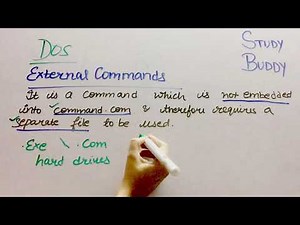 DOS
STUDY
BUDDY
External Commands
It is a command which is not embedded
into command.com & therefore requires a
separate file to be used.
.Exe \ .com
hard drives